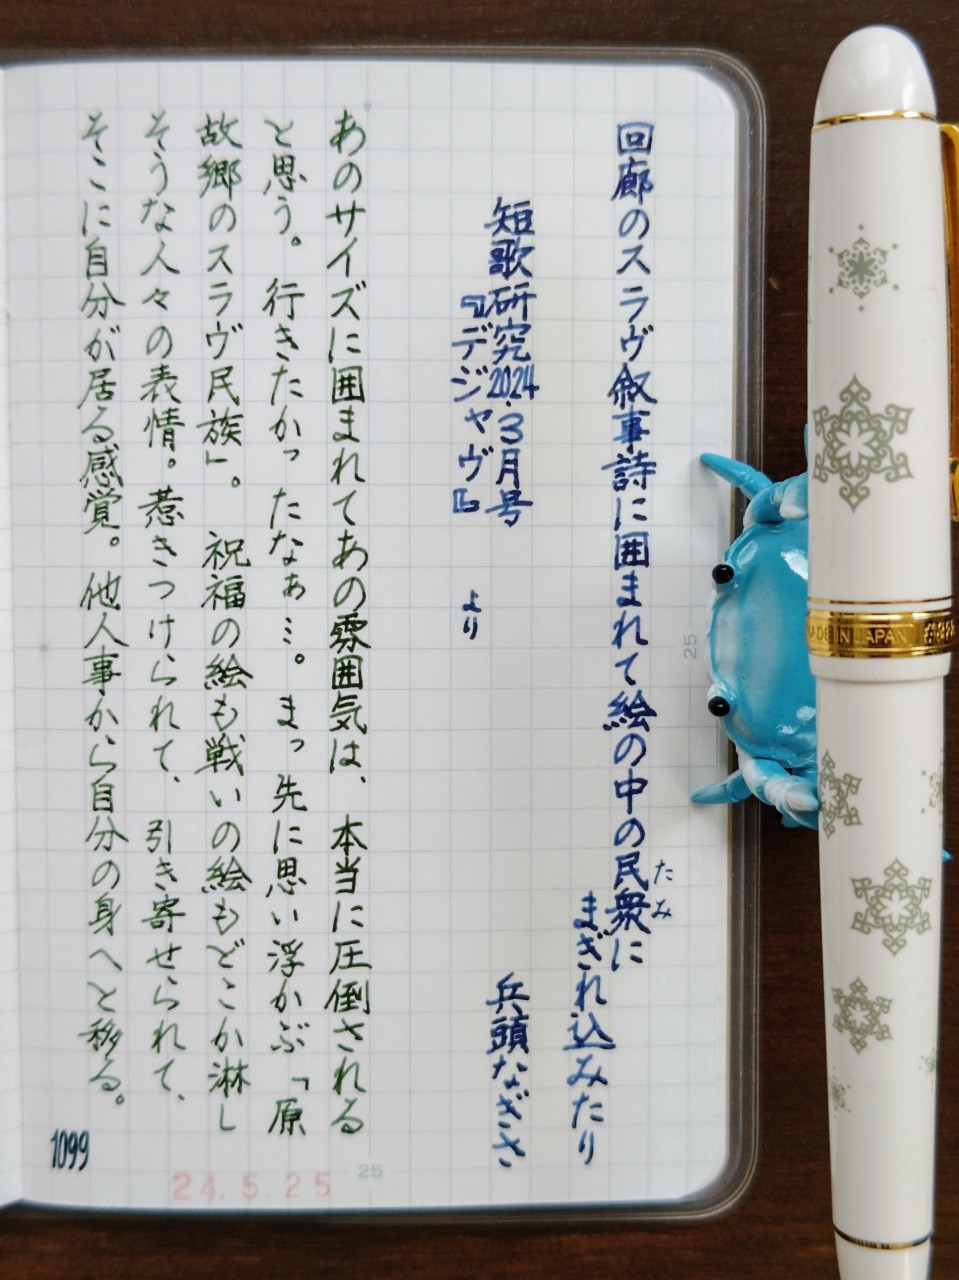 回廊のスラヴ叙事詩に囲まれて絵の中の民衆に
たみ
まぎれ込みたり
兵頭なぎさ
短歌研究2024.3月号
『デジャヴ』
より
あのサイズに囲まれてあの雰囲気は、本当に圧倒される
と思う。行きたかったなぁ…。まっ先に思い浮かぶ「原
故郷のスラヴ民族」。祝福の絵も戦いの絵もどこか淋し
そうな人々の表情。惹きつけられて、引き寄せられて、
そこに自分が居る感覚。他人事から自分の身へと移る。
1099
24.5.25
25
25
MADE IN JAPAN